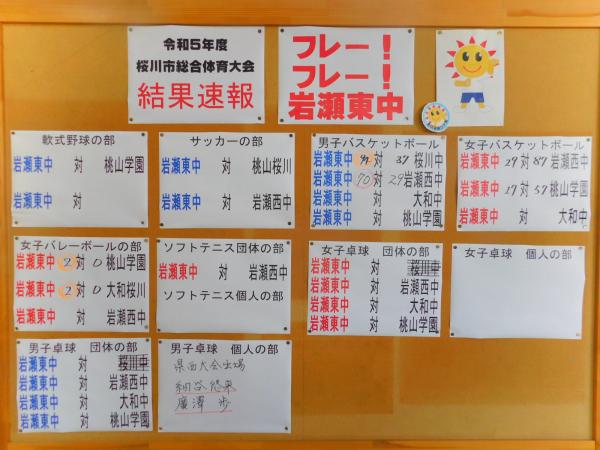 令和5年度
桜川市総合体育大会
結果速報
フレー!
フレー!
岩瀬東中
軟式野球の部
岩瀬東中 対 桃山学園
岩瀬東中 対
サッカーの部
岩瀬東中 対 桃山桜川
岩瀬東中 対 岩瀬西中
男子バスケットボール
岩瀬東中 対 37 桜川中
岩瀬東中 70 対 29 岩瀬西中
岩瀬東中 対 大和中
岩瀬東中 対 桃山学園
女子バスケットボール
岩瀬東中 29 対 87 岩瀬西中
岩瀬東中 17 対 57 桃山学園
岩瀬東中 対 大和中
女子バレーボールの部
岩瀬東中 2 対 0 桃山学園
岩瀬東中 2 対 0 大和桜川
岩瀬東中 対 岩瀬西中
ソフトテニス団体の部
岩瀬東中 対 岩瀬西中
ソフトテニス個人の部
女子卓球 団体の部
岩瀬東中 対 桜川中
岩瀬東中 対 岩瀬西中
岩瀬東中 対 大和中
岩瀬東中 対 桃山学園
女子卓球 個人の部
男子卓球 団体の部
岩瀬東中 対 桜川中
岩瀬東中 対 岩瀬西中
岩瀬東中 対 大和中
岩瀬東中 対 桃山学園
男子卓球 個人の部
県西大会出場
細谷悠果
廣澤 歩